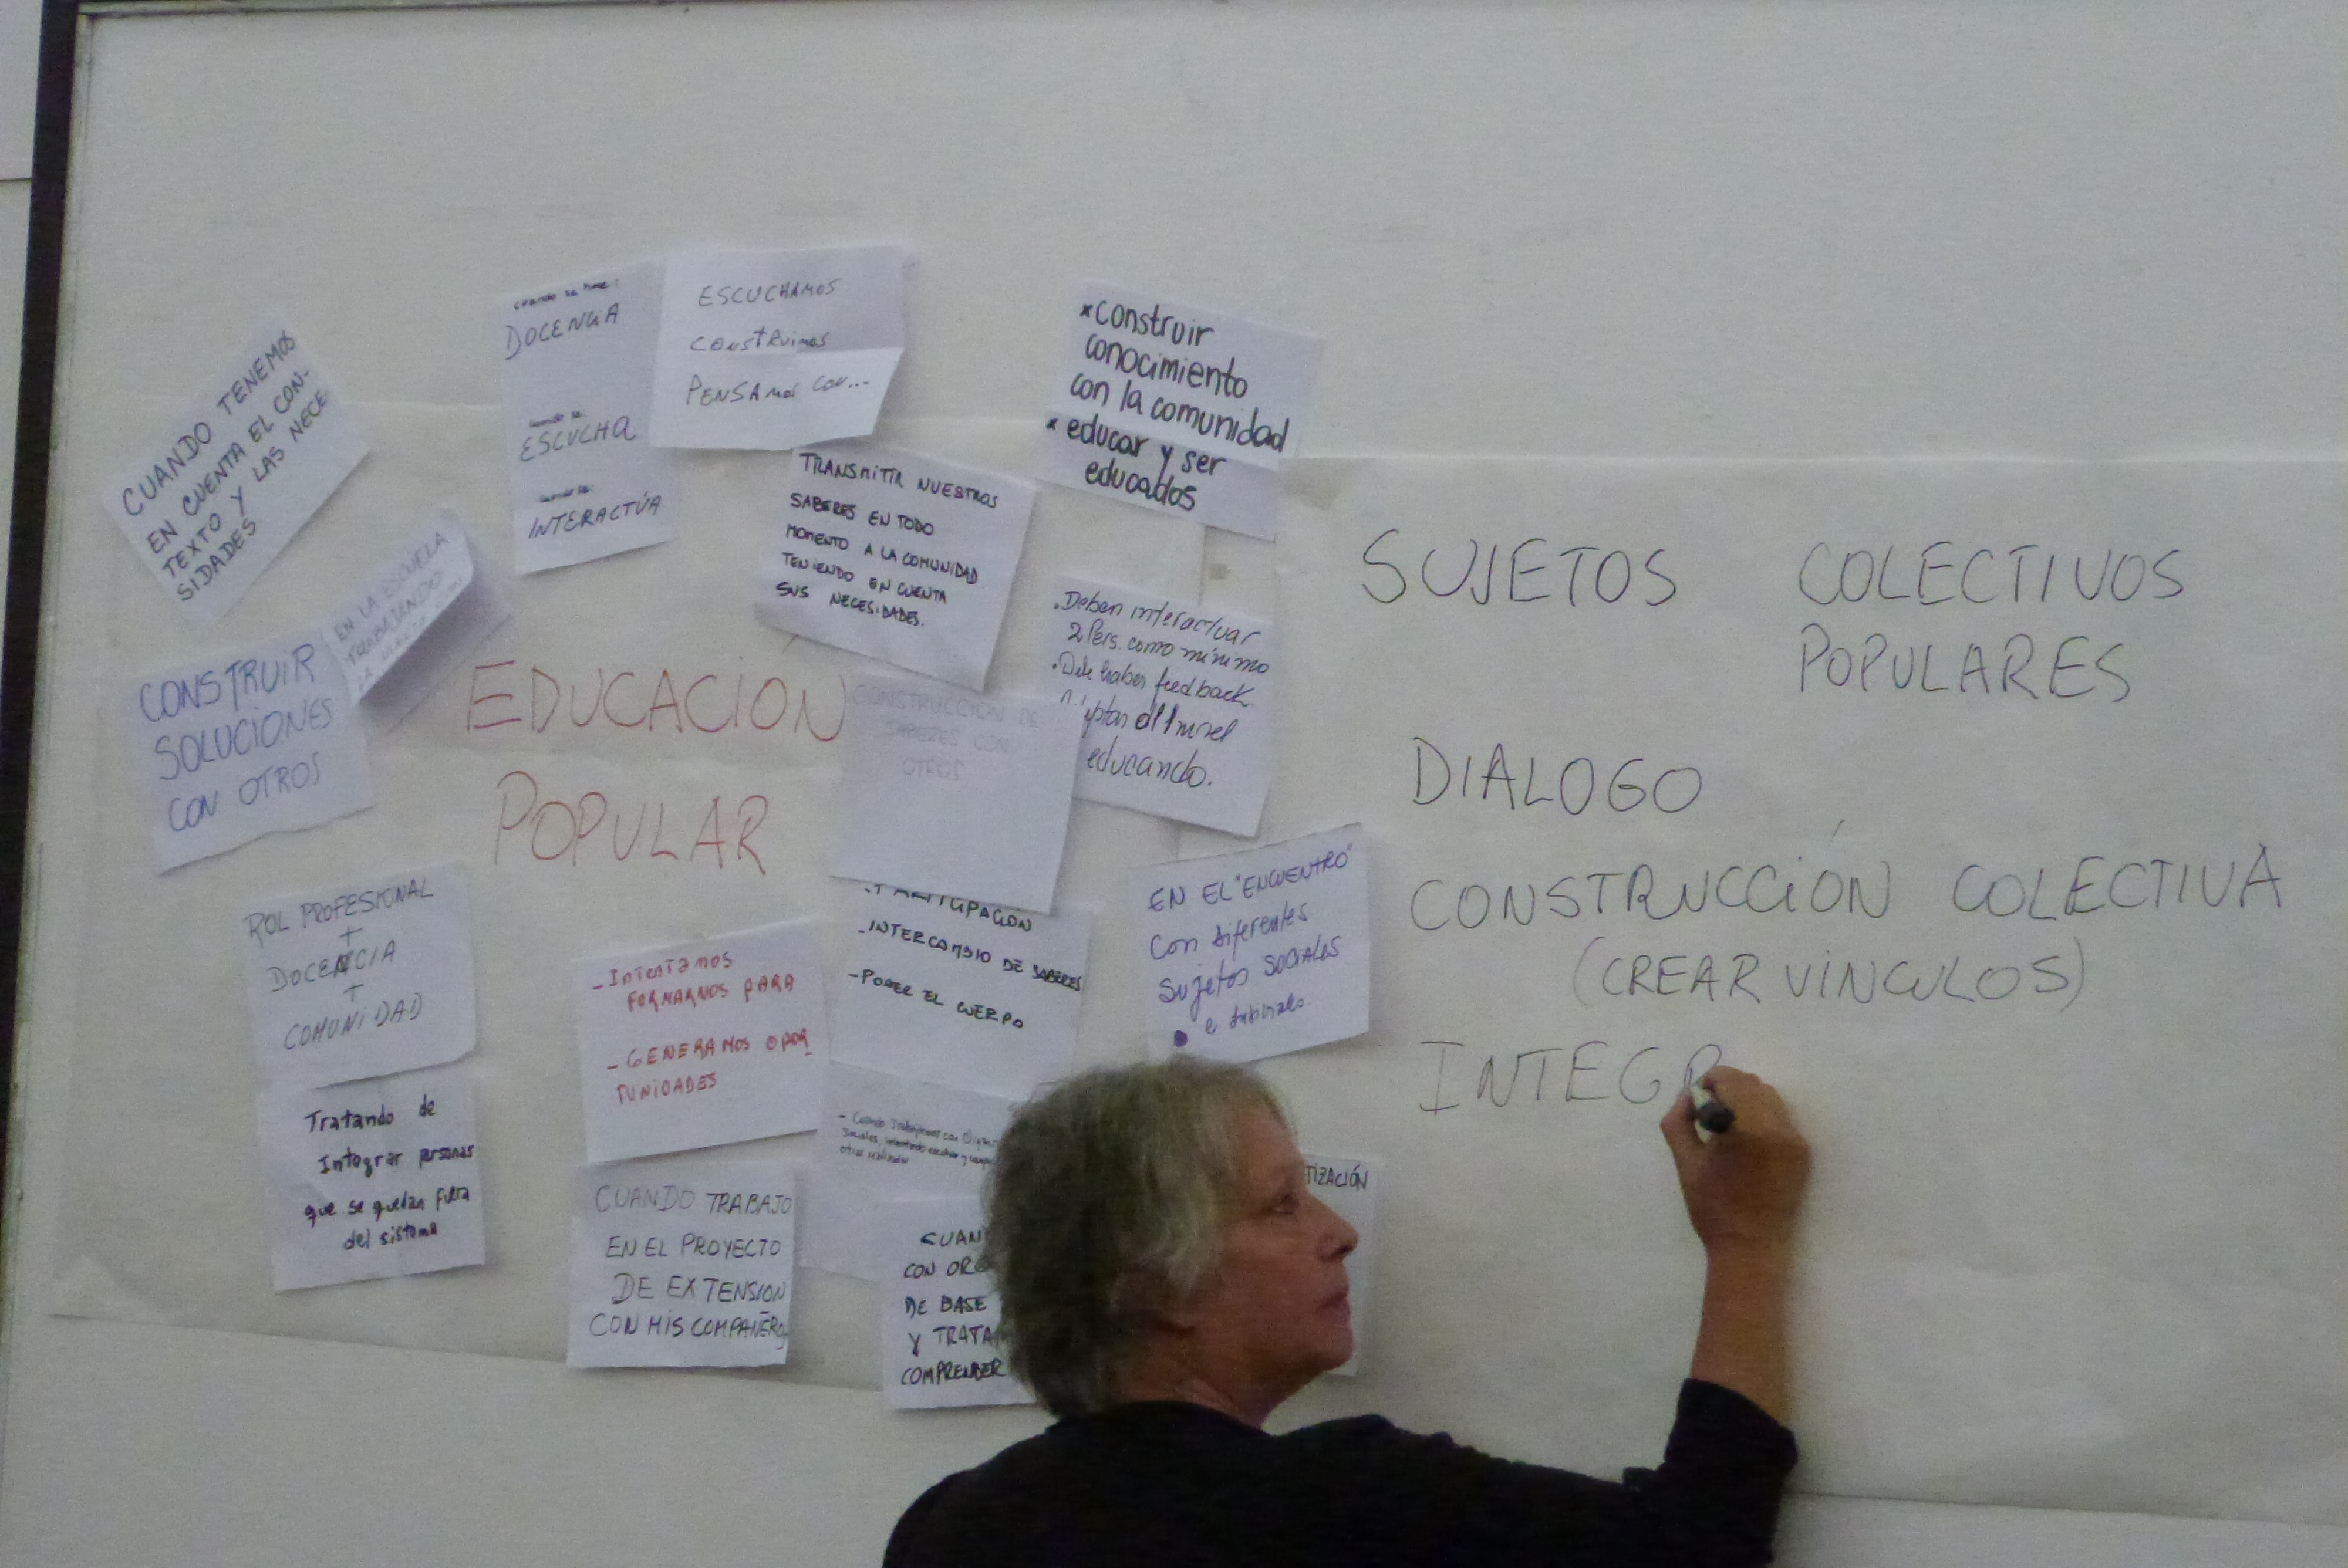 CUANDO TENEMOS
EN CUENTA EL CON-
TEXTO Y LAS NECE
SIDADES
EN LA ESCUELA
TRABAJANDO
CONSTRUIR
SOLUCIONES
CON OTROS
cuando se hace:
DOCENCIA
cuando se:
ESCUCHA
cuando se:
INTERACTÚA
ESCUCHAMOS
CONSTRUIMOS
PENSAMOS CON...
TRANSMITIR NUESTROS
SABERES EN TODO
MOMENTO A LA COMUNIDAD
TENIENDO EN CUENTA
SUS NECESIDADES.
*construir
conocimiento
con la comunidad
* educar y ser
educados
.Deben interactuar
2 Pers. como mínimo
.Debe haber feedback
educando.
EDUCACIÓN
POPULAR
CONSTRUCCIÓN DE
SABERES CON
OTROS
ROL PROFESIONAL
+
DOCENCIA
+
COMUNIDAD
-Intentamos
FORMARNOS PARA
-GENERAMOS OPOR
TUNIDADES
-PARTICIPACIÓN
-INTERCAMBIO DE SABERES
-PONER EL CUERPO
EN EL "ENCUENTRO"
Con diferentes
Sujetos SOCIALES
Tratando de
Integrar personas
que se quedan fuera
del sistema
CUANDO TRABAJO
EN EL PROYECTO
DE EXTENSION
CON MIS COMPAÑEROS
- Cuando Trabajamos con
CUAN
CON ORG
DE BASE
Y TRATA
COMPRENDER
TIZACIÓN
SUJETOS COLECTIVOS
POPULARES
DIALOGO
CONSTRUCCIÓN COLECTIVA
(CREAR VÍNCULOS)
INTEGR